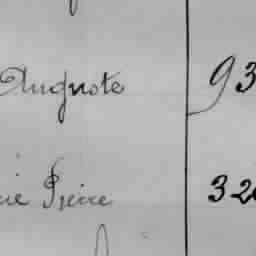 Auguste 93
Pierre 32